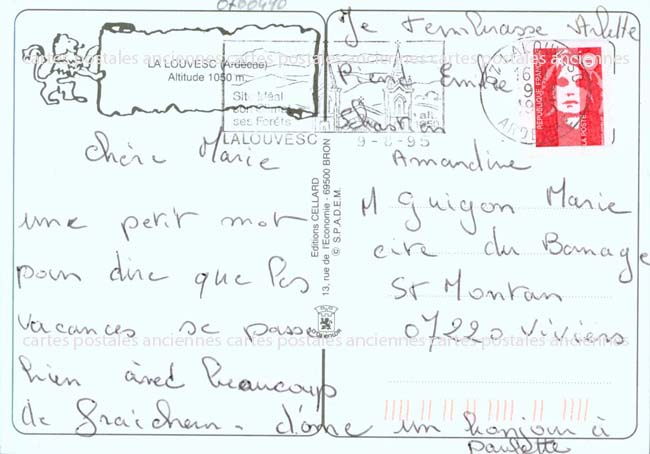 0700490
Je t'embrasse Arlette
LA LOUVESC (Ardèche)
Altitude 1050 m.
René Emilie
Sébastien
Site idéal
ses Forêts
LALOUVESC
9-8-95
REPUBLIQUE FRANÇAISE
LA POSTE
cartes postales anciennes cartes postales anciennes cartes postales anciennes
Chère Marie
une petit mot
pour dire que les
vacances se passe
bien avec beaucoup
de fraicheur. donne un bonjour à
paulette
Editions CELLARD
13, rue de l'Economie - 69500 BRON
© S.P.A.D.E.M.
Amandine
M Guigon Marie
cite du Barrage
St Montan
07220 Viviers
cartes postales anciennes cartes postales anciennes cartes postales anciennes